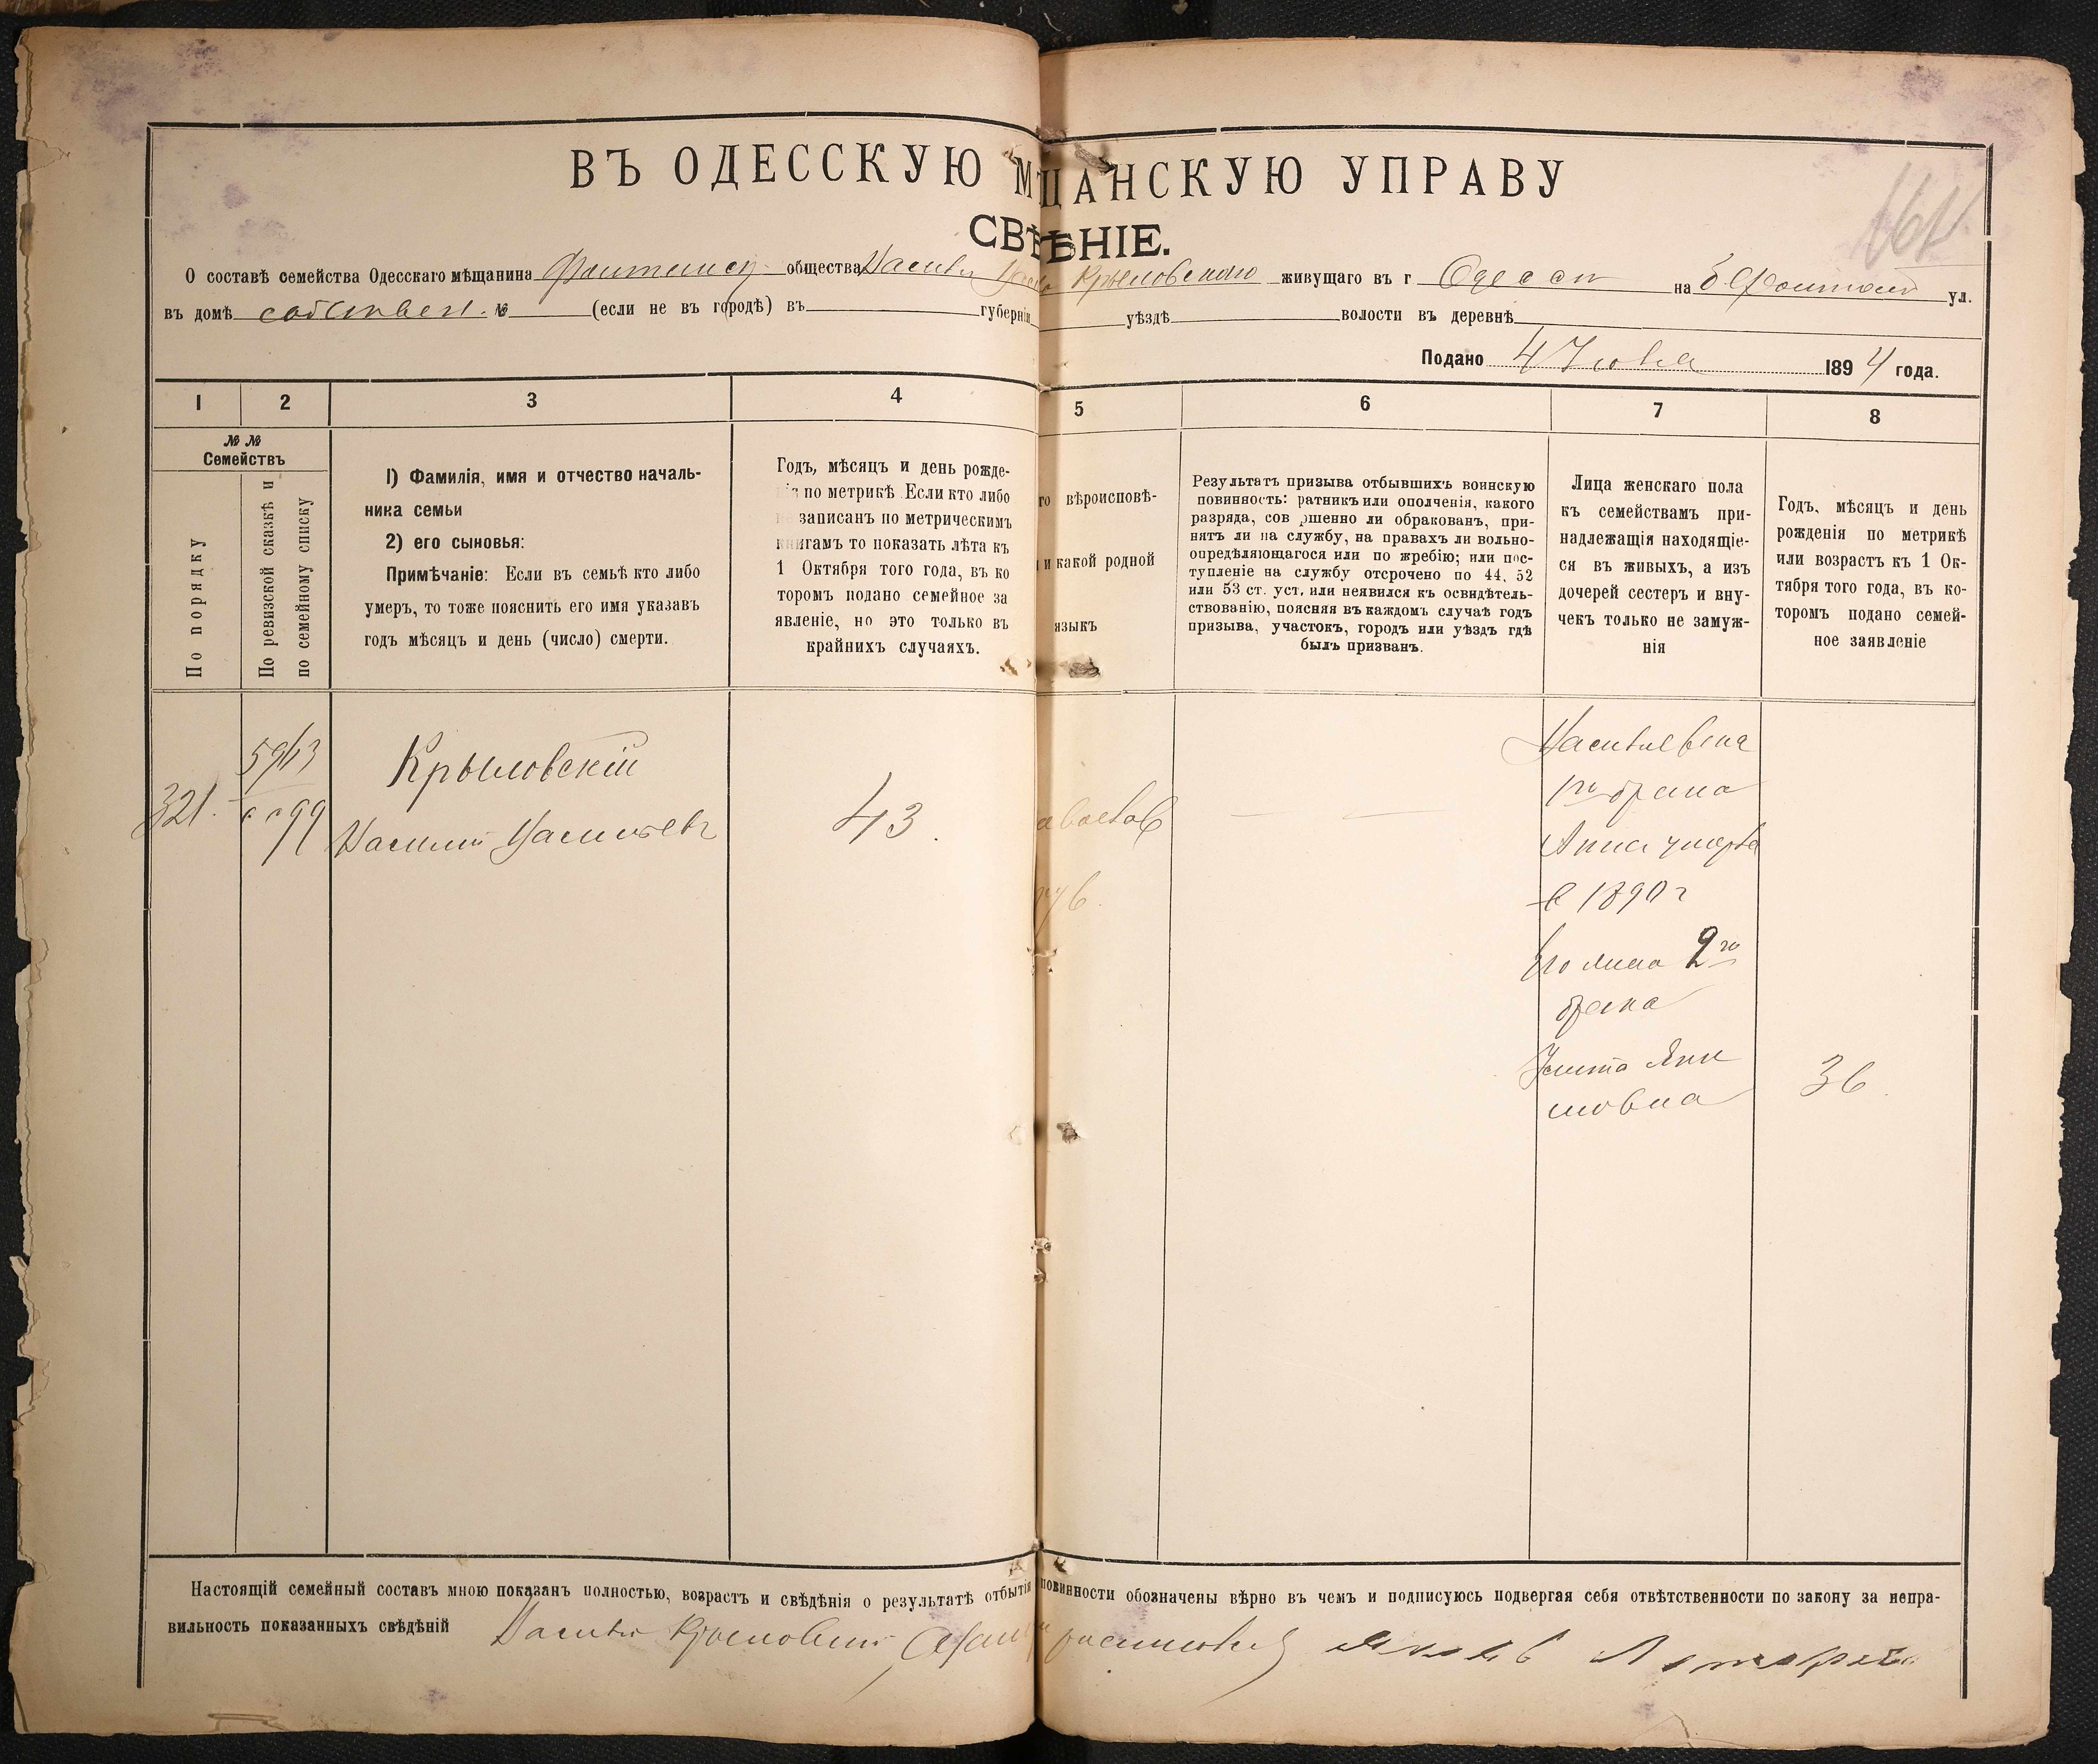 ВЪ ОДЕССКУЮ МѢЩАНСКУЮ УПРАВУ
СВѢДѢНІЕ.
О составѣ семейства Одесскаго мѣщанина Фонтанск общества Василія Крыловскаго живущаго въ г Одессѣ на Б Фонтанѣ ул.
въ домѣ собствен. № (если не въ городѣ) въ губерніи уѣздѣ волости въ деревнѣ
Подано 4 Іюня 1894 года.
1 2 3 4 5 6 7 8
№ № Семействъ
По порядку
По ревизской сказкѣ и
по семейному списку
1) Фамилія, имя и отчество началь-
ника семьи
2) его сыновья:
Примѣчаніе: Если въ семьѣ кто либо
умеръ, то тоже пояснить его имя указавъ
годъ мѣсяцъ и день (число) смерти.
Годъ, мѣсяцъ и день рожде-
нія по метрикѣ Если кто либо
не записанъ по метрическимъ
книгамъ то показать лѣта къ
1 Октября того года, въ ко
торомъ подано семейное за
явленіе, но это только въ
крайнихъ случаяхъ.
го вѣроисповѣ-
и какой родной
языкъ
Результатъ призыва отбывшихъ воинскую
повинность: ратникъ или ополченія, какого
разряда, сов ршенно ли обракованъ, при-
нятъ ли на службу, на правахъ ли вольно-
опредѣляющагося или по жребію; или пос-
тупленіе на службу отсрочено по 44, 52
или 53 ст. уст, или неявился къ освидѣтель-
ствованію, поясняя въ каждомъ случаѣ годъ
призыва, участокъ, городъ или уѣздъ гдѣ
былъ призванъ.
Лица женскаго пола
къ семействамъ при-
надлежащія находящіе-
ся въ живыхъ, а изъ
дочерей сестеръ и вну-
чекъ только не замуж-
нія
Годъ, мѣсяцъ и день
рожденія по метрикѣ
или возрастъ къ 1 Ок-
тября того года, въ ко-
торомъ подано семей-
ное заявленіе
321.
99
Крыловскій
Василій Васильевъ
43.
1го брака
Анна умерла
в 1890 г
Его жена 2го
брака
Улита Яки
мовна
36
Настоящій семейный составъ мною показанъ полностью, возрастъ и свѣдѣнія о результатѣ отбытія повинности обозначены вѣрно въ чемъ и подписуюсь подвергая себя отвѣтственности по закону за непра-
вильность показанныхъ свѣдѣній Василий Крыловский